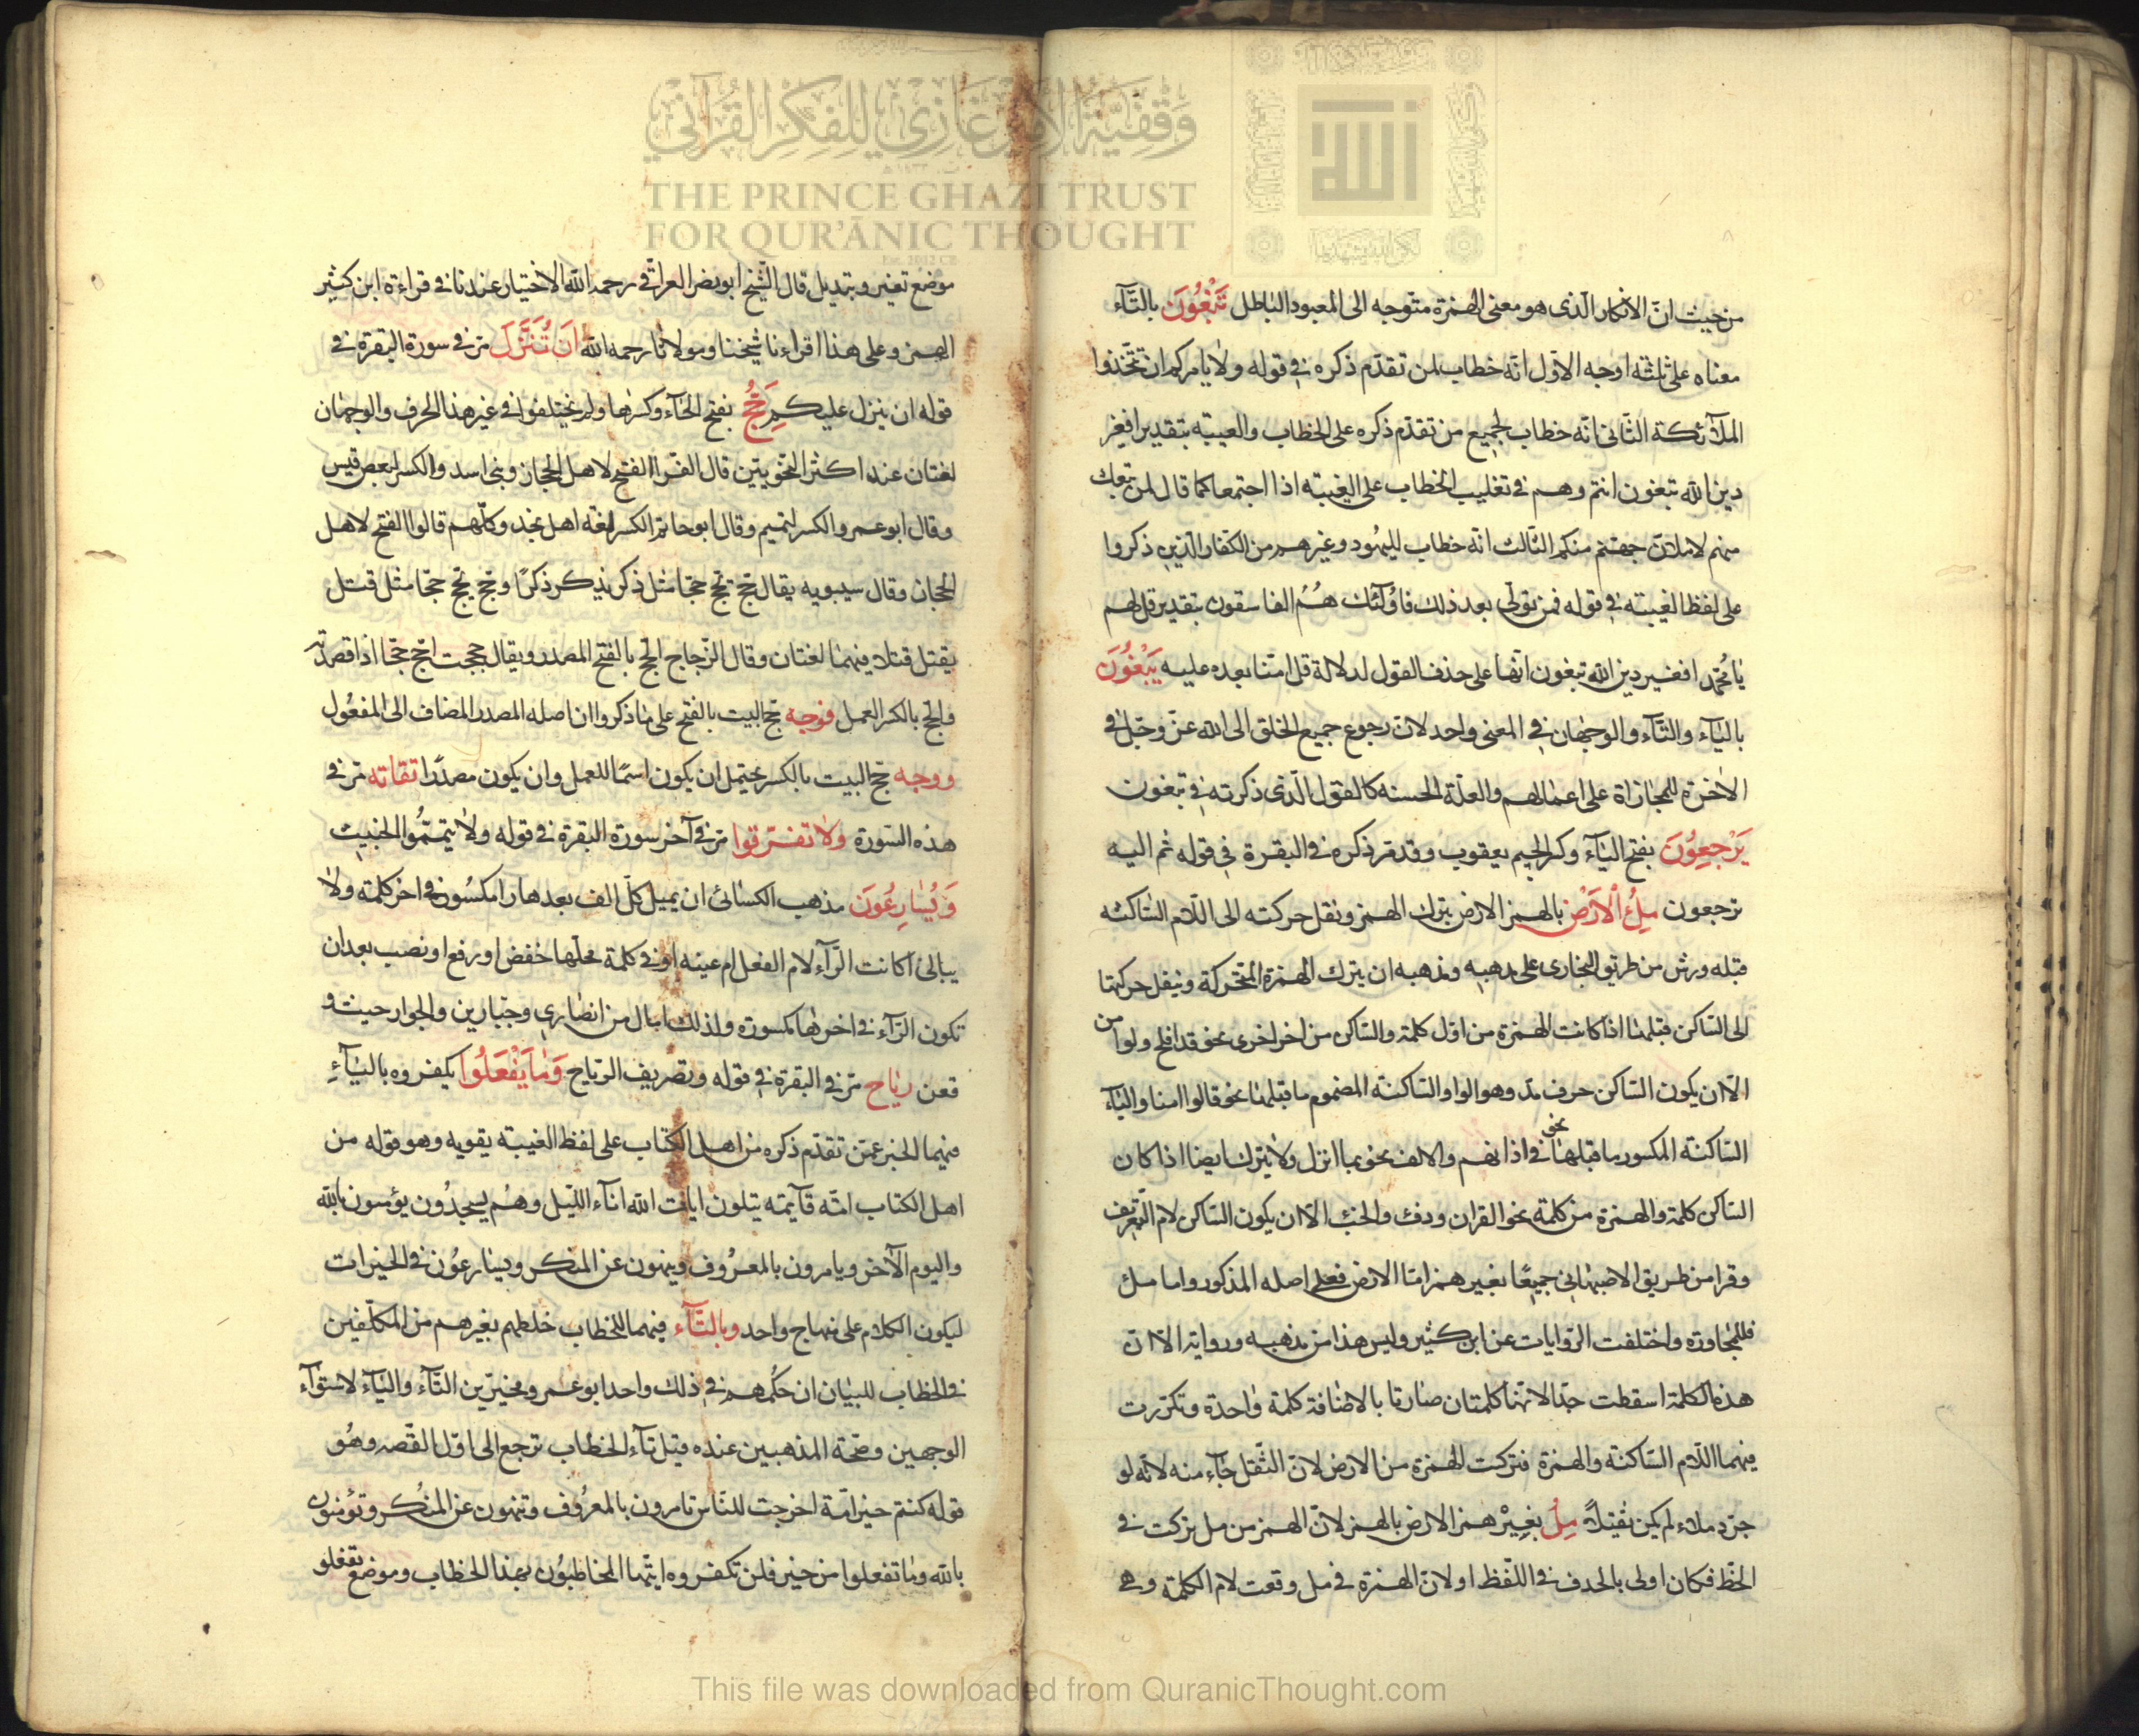 من حيث انّ الانكار الّذى هو معنى الهمزة متوجه الى المعبود الباطل تَبْغُونَ بالتّآء
معناه على ثلثة اوجه الاوّل انّه خطاب لمن تقدّم ذكره فى قوله ولا يامركم ان تتّخذوا
الملآئكة الثّانى انّه خطاب لجميع من تقدّم ذكره على الخطاب والغيبة بتقدير افغير
دين الله تبغون انتم وهم فى تغليب الخطاب على الغيبة اذا اجتمعا كما قال لمن تبعك
منهم لاملانّ جهنّم منكم الثّالث انّه خطاب لليهُود وغيرهم من الكفار الّذين ذكروا
على لفظ الغيبة فى قوله فمن تولّى بعد ذلك فاولٓئك هُمُ الفاسقون بتقدير قل لهم
يا محُمّد افغير دين الله تبغون انّها على حذف القول لدلالة قل امنّا بعده عليه يَبْغُونَ
باليآء والتّآء والوجهان فى المعنى واحد لانّ رجوع جميع الخلق الى الله عزّ وجّل فى
الاخرة للمجازاة على اعمالهم والعلّة الحسنه كالقول الّذى ذكرته فى تبغون
يَرْجِعُونَ بفتح اليآء وكسر الجيم يعقوب وقد مرّ ذكره فى البقرة فى قوله ثم اليه
ترجعون مِلُ اْلاَرْضِ بالهمز الارض بترك الهمز ونقل حركته الى اللّام السّاكنه
قبله ورش من طريق البخارى على مذهبه ومذهبه ان يترك الهمزة المتحركة وينقل حركتها
الى السّاكن قبلها اذا كانت الهمزة من اوّل كلمة والسّاكن من اخر اخرى نحو قد افلح ولوا من
الّا ان يكون السّاكن حرف مدّ وهو الواو السّاكنة المضموم ما قبلها نحو قالوا امنا واليآء
السّاكنة المكسور ما قبلها نحو فى اذانهم والالف نحو بما انزل ولا يترك ايضا اذا كان
السّاكن كلمة والهمزة من كلمة نحو القران ودفء والخبء الّا ان يكون السّاكن لام التّعريف
وقرا من طريق الاصبهانى جميعًا بغير همز امّا الارض فعلى اصله المذكور واما ملء
فللمجاورة واختلفت الرّوايات عن ابن كثير وليس هذا من مذهبه ورواية الّا انّ
هذه الكلمة اسقطت جدّا لانّها كلمتان صارتا بالاضافة كلمة واحدة وتكرّرت
فيهما اللّام السّاكنة والهمزة فتركت الهمزة من الارض لانّ الثّقل جآء منه لانّه لو
جرّد ملء لم يكن ثقيلاً مِلُ بغيْر همز الارض بالهمز لانّ الهمز من مل تركت فى
الخطّ فكان اولى بالحذف فى اللّفظ او لانّ الهمزة فى مل وقعت لام الكلمة وهى
موضع تغير وتبديل قال الشّيخ ابو نصر العراقّى رحمه الله الاختيار عندنا فى قراءة ابن كثير
الهمز وعلى هذا اقراءنا شيخنا ومولانا رحمه الله اَنْ تُنَزَّلَ مرّ فى سورة البقرة فى
قوله ان ينزل عليكم حِجُّ بفتح الحآء وكسرها ولم يختلفوا فى غير هذا الحرف والوجهان
لغتان عند اكثر النّحويّين قال الفرّا الفتح لاهل الحجاز وبنى اسد والكسر لبعض قيس
وقال ابو عمرو الكسر لتميم وقال ابو حاتم الكسر لغة اهل نجد وكلّهم قالوا الفتح لاهل
الحجاز وقال سيبويه يقال حجّ يحّج حجّا مثل ذكر يذكر ذكرًا وحجّ يحجّ حجّا مثل قتل
يقتل قتلا فيهما لغتان وقال الزّجاج الحجّ بالفتح المصدر ويقال حججت احّج حجّا اذا قصدتّه
والحجّ بالكسر العمل فوجه حجّ البيت بالفتح على ما ذكروا ان اصله المصدر المضاف الى المفعُول
ووجه حجّ البيت بالكسر يحتمل ان يكون اسمًا للعمل وان يكون مصدرًا تقاته مرّ فى
هذه السّورة ولا تفرّقوا مرّ فى آخر سورة البقرة فى قوله ولا تيمّمُوا الخبيث
وَيُسَارِعُونَ مذهب الكسائى ان يميل كلّ الف بعدها را مكسُورة فى اخر كلمة ولا
يبالى اكانت الرّآء لام الفعل ام عينه او فى كلمة محلّها خفض او رفع او نصب بعد ان
تكون الرّآء فى اخرها مكسورة ولذلك امال من انصارى وجبّارين والجوار حيث و
قعن رياح مرّ فى البقرة فى قوله وتصريف الرّياح وَمَا يَفْعَلُوا يكفروه باليآءِ
فيهما الخبر عمّن تقدّم ذكره من اهل الكتاب على لفظ الغيبة يقويه وهو قوله من
اهل الكتاب امّة قآيمة يتلون ايات الله انآء اللّيل وهُم يسجدُون يؤمنون بالله
واليوم الآخر ويامرون بالمعرُوف وينهون عن المنكر ويسارعُون فى الخيرات
ليكون الكلام على منهاج واحد وبالتّآء فيهما للخطاب خلطهم بغيرهم من المكلّفين
فى الخطاب للبيان ان حكُمهم فى ذلك واحد ابو عمرو مخيّر بين التّآء واليآء لاستوآء
الوجهين وصحّة المذهبين عنده قيل تآء الخطاب ترجع الى اوّل القصّه وهُو
قوله كنتم خير امّة اخرجت للنّاس تامرون بالمعرُوف وتنهون عن المنُكر وتؤمنون
بالله وما تفعلوا من خير فلن تكفروه ايّها المخاطبُون بهذا الخطاب وموضع تفعلو
وقفيّة الأمير غازي للفكر القرآني
THE PRINCE GHAZI TRUST
FOR QUR'ĀNIC THOUGHT
Est. 2012 CE
This file was downloaded from QuranicThought.com